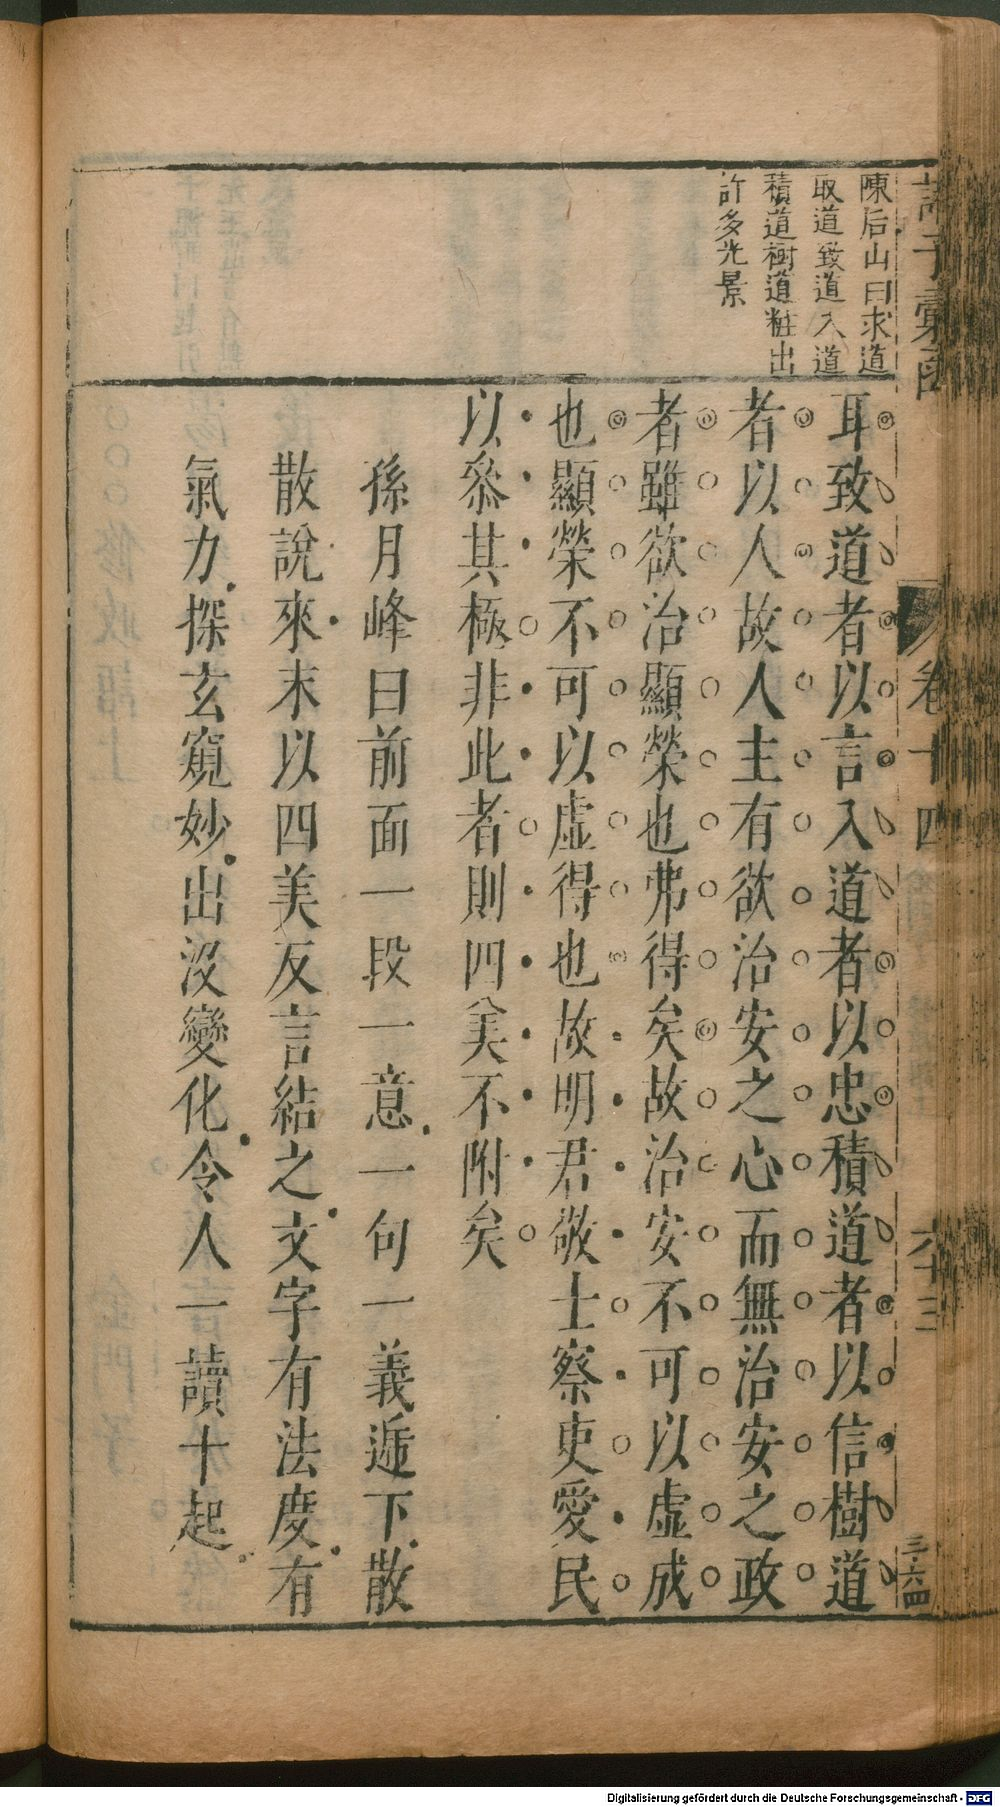 諸子彙函
卷十四
六十三
三・六四
陳后山曰求道
取道致道入道
積道樹道粧出
許多光景
耳致道者以言入道者以忠積道者以信樹道
者以人故人主有欲治安之心而無治安之政
者雖欲治顯榮也弗得矣故治安不可以虛成
也顯榮不可以虛得也故明君敬士察吏愛民
以叅其極非此者則四美不附矣
孫月峰曰前面一段一意一句一義逓下散
散說來末以四美反言結之文字有法度有
氣力探玄窺妙出沒變化令人一讀十起
Digitalisierung gefördert durch die Deutsche Forschungsgemeinschaft - DFG